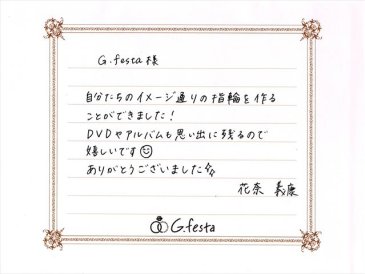 G.festa様
自分たちのイメージ通りの指輪を作る
ことができました!
DVDやアルバムも思い出に残るので
嬉しいです☺
ありがとうございました
花奈 義康
G.festa